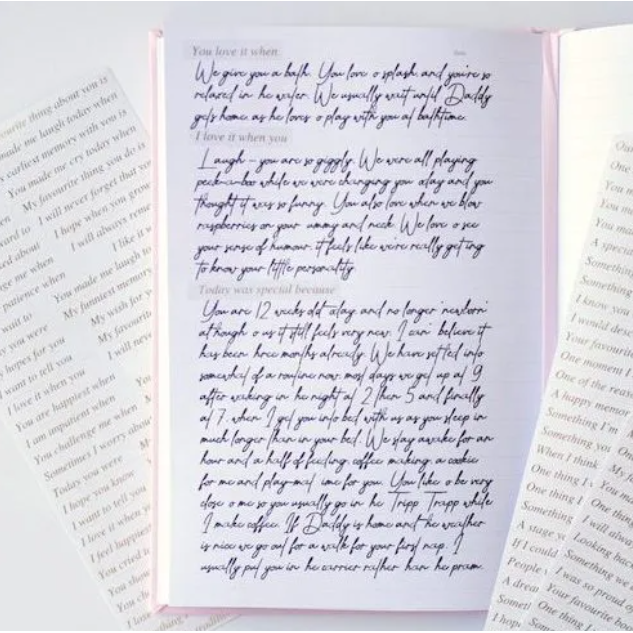 ourite thing about you is
made me laugh today when
earliest memory with you is
You made me cry today when
My favourite thing you do is
I will never forget that
I hope when you grow
I will always
I like it
ge me when
patience when
You made me laugh
My funniest memory
wait to
My wish for
you were
My favourite
hopes for you
I will never
want to tell you
I love it when you
You are happiest when
I am impatient when
You challenge me when
Sometimes I worry about
Today you were
I hope you know
I want to tell you
I love it when you
I feel happiest
You cried
You love it when
We give you a bath. You love o splash and you're so
relaxed in he water. We usually wait until Daddy
gets home as he loves o play with you at bathtime.
I love it when you
Laugh - you are so giggly. We were all playing
peek-a-boo while we were changing you oday and you
thought it was so funny. You also love when we blow
raspberries on your ummy and neck. We love o see
your sense of humour, it feels like we're really get ing
to know your little personality.
Today was special because
You are 12 weeks old oday and no longer 'newborn'
al hough o us it still feels very new. I can' believe it
has been hree months already. We have set led into
somewhat of a routine now, most days we get up at 9
after waking in he night at 2 then 5 and finally
at 7, when I get you into bed with us as you sleep in
much longer than in your bed. We stay awake for an
hour and a half of feeding, coffee making, a cookie
for me and play-mat ime for you. You like o be very
close o me so you usually go in he Tripp Trapp while
I make coffee. If Daddy is home and the weather
is nice we go out for a walk for your first nap. I
usually put you in he carrier rather han he pram.
One
You
You
A special
Something
Something
I know you
I would
Your favourite
One moment I
One of the
A happy memor
Something I'm
Something you
When I think
One thing I
One thing I
Something
A stage
If I could
People
I hope
One thing
I will alway
Looking back
Something we
I was so proud o
Your favourite boo
One thing I